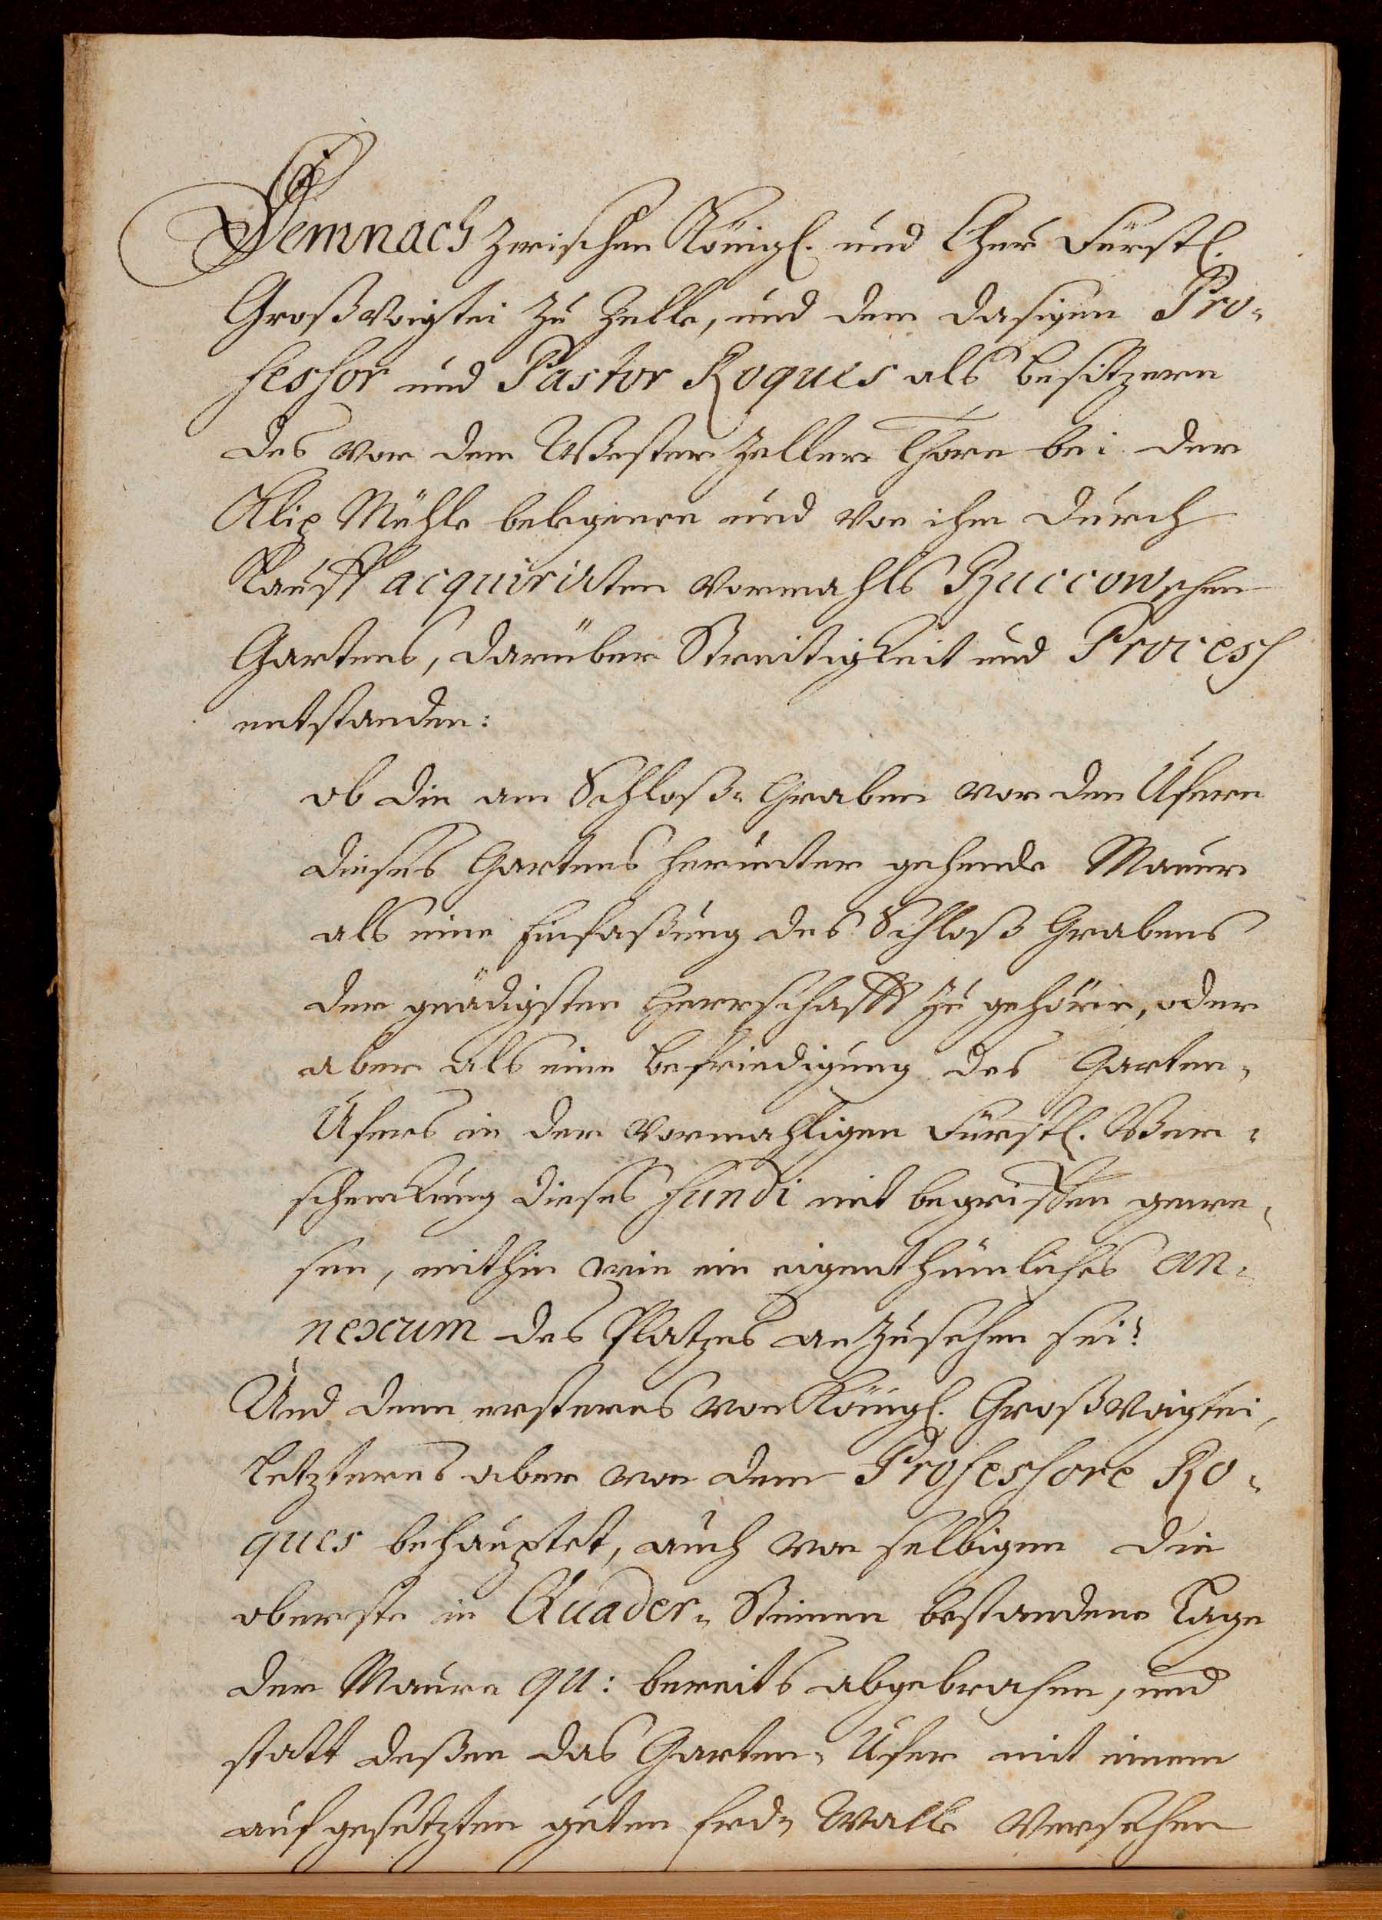 Demnach zwischen Königl. und Chur Fürstl.
Großvoigtei zu Zelle, und dem dasigen Pro-
fessor und Pastor Roques als besitzern
des vor dem Wester Zeller Thore bei der
Klip Mühle belegenen und von ihm durch
Kauff acquirirten vormahls Buccowschen
Gartens, darüber Streitigkeit und Process
entstanden:
ob die am Schloß-Graben vor den Ufern
dieses Gartens herunter gehende Mauer
als eine Einfaßung des Schloß Grabens
der gnädigsten Herrschafft zu gehöre, oder
aber als eine befriedigung des Garten-
Ufers in der vormahligen Fürstl. Ver-
schenckung dieses fundi mit begriffen gewe-
sen, mithin wie ein eigenthümliches an-
nexum des Platzes anzusehen sei?
Und denn ersteres von Königl. Großvoigtei,
letzteres aber von dem Professore Ro-
ques behauptet, auch von selbigem die
oberste in Quader-Steinen bestandene Lage
der Maure qu: bereits abgebrochen, und
statt deßen das Garten-Ufer mit einem
aufgesetzten guten Erd-Walle versehen